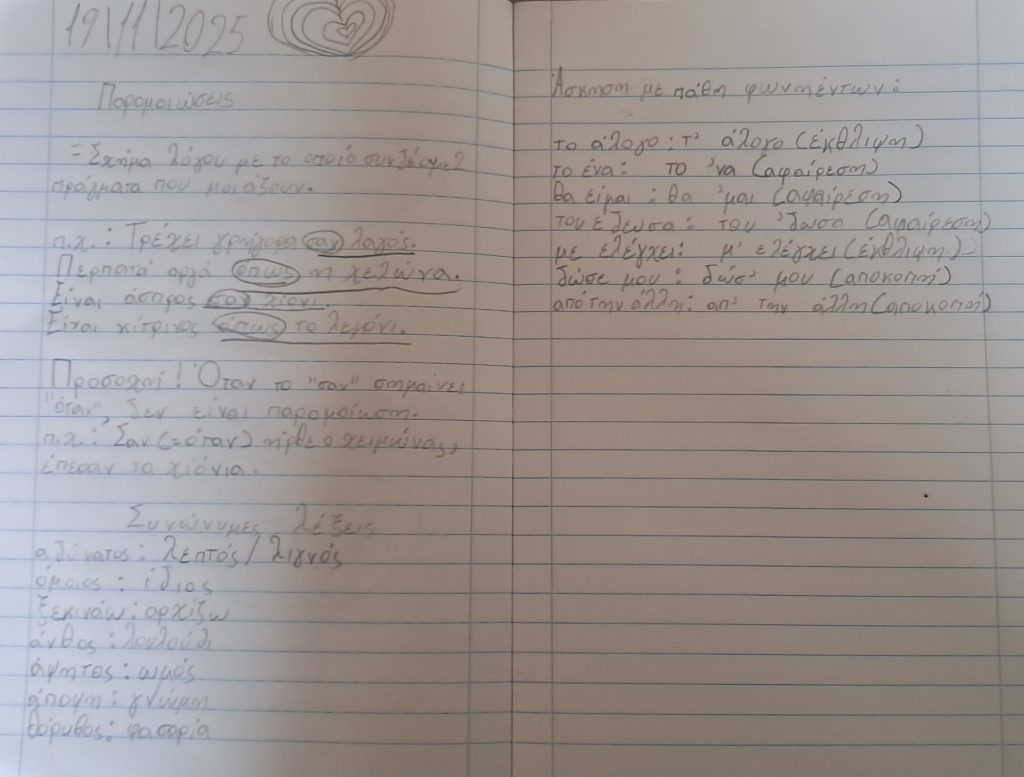 19/11/2025
Παρομοιώσεις
= Σχήμα λόγου με το οποίο συνδέουμε 2
πράγματα που μοιάζουν.
π.χ.: Τρέχει γρήγορα σαν λαγός.
Περπατά αργά όπως η χελώνα.
Είναι άσπρος σαν χιόνι.
Είναι κίτρινος όπως το λεμόνι.
Προσοχή! Όταν το "σαν" σημαίνει
"όταν", δεν είναι παρομοίωση.
π.χ.: Σαν (=όταν) ήρθε ο χειμώνας,
έπεσαν τα χιόνια.
Συνώνυμες λέξεις
αδύνατος: λεπτός/λιγνός
όμοιος: ίδιος
ξεκινάω: αρχίζω
άνθος: λουλούδι
άψητος: ωμός
άποψη: γνώμη
θόρυβος: φασαρία
Άσκηση με πάθη φωνηέντων:
το άλογο: τ' άλογο (έκθλιψη)
το ένα: το 'να (αφαίρεση)
θα είμαι: θα 'μαι (αφαίρεση)
του έδωσα: του 'δωσα (αφαίρεση)
με ελέγχει: μ' ελέγχει (έκθλιψη)
δώσε μου: δώσ' μου (αποκοπή)
από την άλλη: απ' την άλλη (αποκοπή)